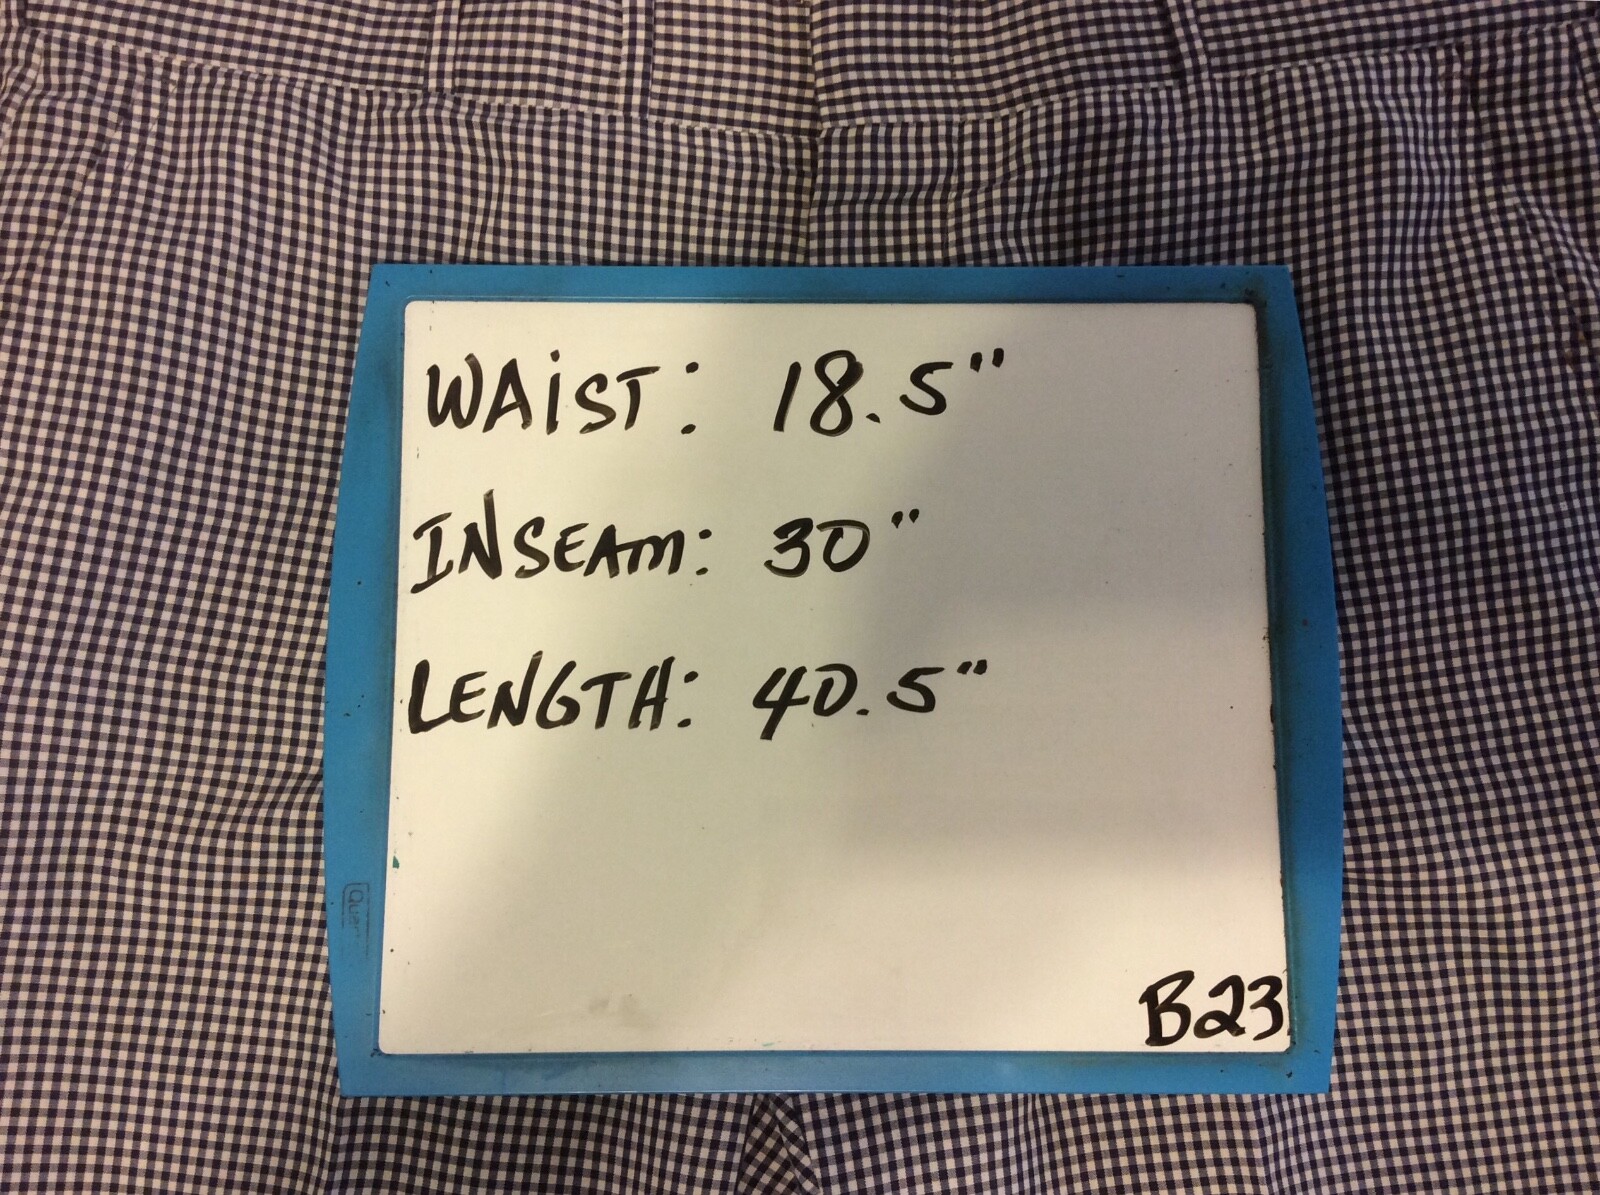 WAiST: 18.5"
INSEAm: 30"
LENGTH: 40.5"
B23